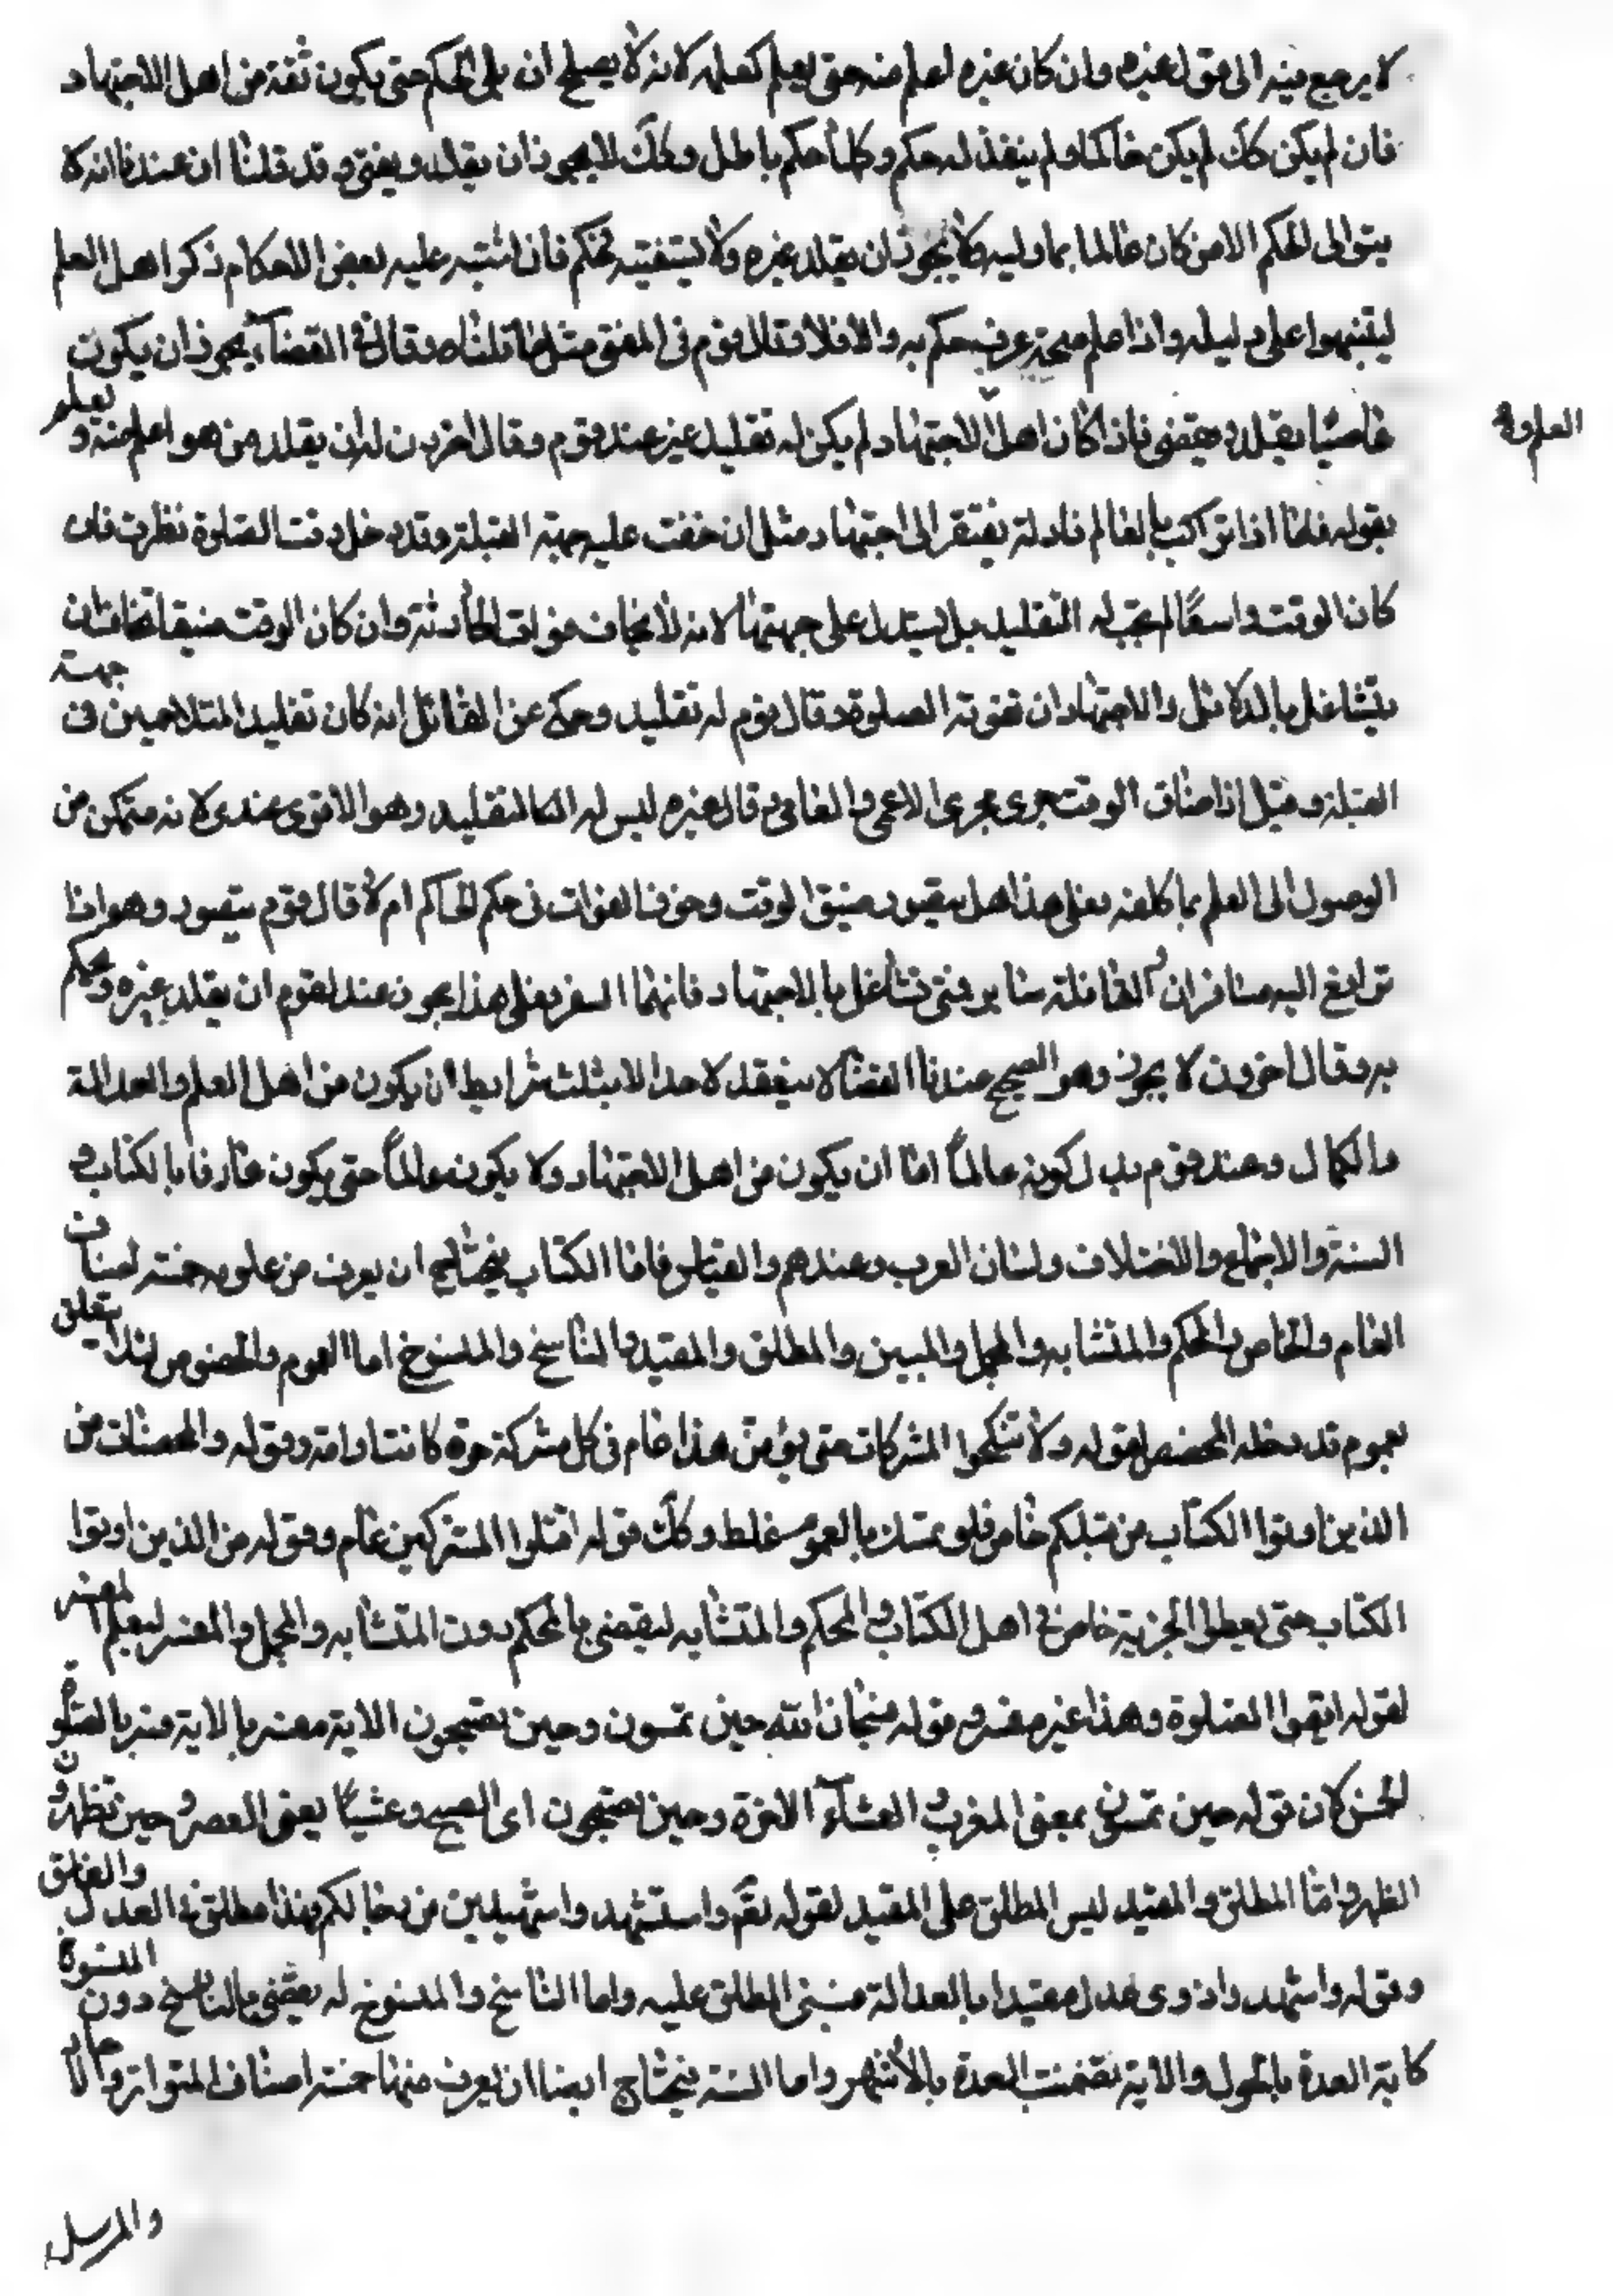 لا يرجع فيه الى قول غيره وان كان غيره اعلم منه حتى يعلم كعلمه لانه لا يصلح ان يلى الحكم حتى يكون ثقة من اهل الاجتهاد
فان لم يكن كك لم يكن حاكما ولم ينفذ له حكم وكلما حكم باطل وكك لا يجوز ان يقلد ويفتى وقد قلنا ان عندنا انه لا
يتوالى الحكم الا من كان عالما بما وليه ولا يجوز ان يقلد غيره ولا يستفتيه فيحكم فان اشتبه عليه بعض الاحكام ذكر اهل العلم
لينبهوا على دليله واذا علم صحته عرف حكم به والا فلا وقال قوم فى المفتى مثل ما قلناه وقال فى القضاء يجوز ان يكون
عاميا يقلد ويقضى فاذا كان اهل الاجتهاد لم يكن له تقليد غيره عند قوم وقال اخرون له ان يقلد من هو اعلم منه و يعلم
العلم وفى
بقوله فاما اذا نزلت بالعالم نادلة يفتقر الى اجتهاد مثل ان خفت عليه جهة القبلة وقد دخل وقت الصلوة نظرت فان
كان الوقت واسعًا لم يجب له التقليد بل يستدل على جهتها لانه لا يخاف فوات الحادثة وان كان الوقت ضيقا يخاف ان
يتشاغل بالدلائل والاجتهاد ان تفوته الصلوة وقال قوم له تقليد وحكى عن القائل انه كان تقليد الملاحين فى جهة
القبلة وقيل اذا ضاق الوقت جرى مجرى الاعمى والعامى وقال غيره ليس له التقليد وهو الاقوى عندى لانه متمكن من
الوصول الى العلم بما كلفه فعلى هذا هل يتصور ضيق الوقت وخوف الفوات فى حكم الحاكم ام لا قال قوم يتصور وهو اذا
ترافع اليه مسافران و القافلة سايرة فمتى تشاغل بالاجتهاد فاتهما السفر فعلى هذا يجوز عند القوم ان يقلد غيره ويحكم
به وقال اخرون لا يجوز وهو الصحيح عندنا القضاء لا ينعقد لاحد الا بثلث شرايط ان يكون من اهل العلم والعدالة
والكمال وعند قوم بدل كونه عالماً اما ان يكون من اهل الاجتهاد ولا يكون عالماً حتى يكون عارفا بالكتاب و
السنة والاجماع والاختلاف ولسان العرب وعندهم والقياس فاما الكتاب فيحتاج ان يعرف من علومه خمسة اصناف
العام والخاص والمحكم والمتشابه والمجمل والمبين والمطلق والمقيد والناسخ والمنسوخ اما العموم والخصوص لئلا يتعلق
بعموم قد دخله التخصيص لقوله ولا تنكحوا المشركات حتى يؤمن هذا عام فى كل مشركة حرة كانت او امة وقوله والمحصنات من
الذين اوتوا الكتاب من قبلكم خاص فلو تمسك بالعموم غلط وكك قوله اقتلوا المشركين عام وقوله من الذين اوتوا
الكتاب حتى يعطوا الجزية خاص فى اهل الكتاب والمحكم والمتشابه ليقضى بالمحكم دون المتشابه والمجمل والمفسر ليعلم المفسر
لقوله اقيموا الصلوة وهذا غير مفسر وقوله فسبحان الله حين تمسون وحين تصبحون الاية مفسر بالاية فسر بالصلوة
الخمس لان قوله حين تمسون بمعنى المغرب والعشاء الاخرة وحين تصبحون اى الصبح وعشيًا يعنى العصر وحين تظهرون
الظهر واما المطلق والمقيد ليس المطلق على المقيد لقوله تعم واستشهدوا شهيدين من رجالكم فهذا مطلق فى العدل والفاسق
وقوله واشهدوا ذوى عدل مقيدا بالعدالة فيبنى المطلق عليه واما الناسخ والمنسوخ له يقضى بالناسخ دون المنسوخ
كاية العدة بالحول والاية تضمنت العدة بالاشهر واما السنة فيحتاج ايضا ان يعرف منها خمسة اصناف المتواتر والاحاد
والمرسل